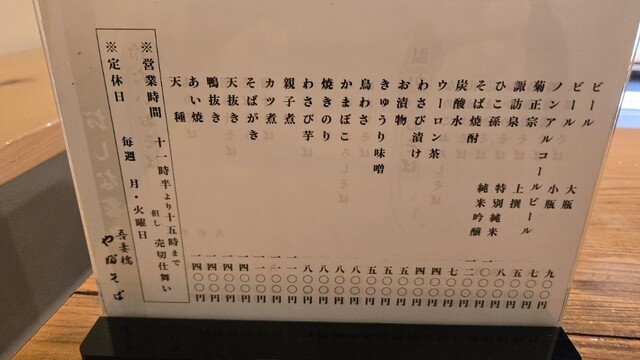 ビール 大瓶 九〇〇円
ビール 小瓶 七〇〇円
ノンアルコールビール 五〇〇円
菊正宗 上撰 八〇〇円
諏訪泉 特別純米 一〇〇〇円
ひこ孫 純米吟醸 一二〇〇円
そば焼酎 七〇〇円
炭酸水 四〇〇円
ウーロン茶 四〇〇円
わさび漬け 五〇〇円
お漬物 五〇〇円
きゅうり味噌 五〇〇円
鳥わさ 八〇〇円
かまぼこ 八〇〇円
焼きのり 八〇〇円
わさび芋 八〇〇円
親子煮 一一〇〇円
カツ煮 一一〇〇円
そばがき 一一〇〇円
天抜き 一四〇〇円
鴨抜き 一四〇〇円
あい焼 一四〇〇円
天種 一四〇〇円
※営業時間 十一時半より十五時まで
但し 売切仕舞い
※定休日 毎週 月・火曜日
吾妻橋
やぶそば